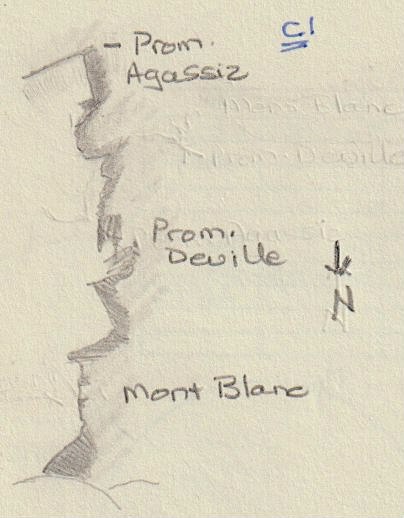 C1
- Prom.
Agassiz
Mont Blanc
Prom. Deville
Agassiz
Prom.
Deville
N
Mont Blanc